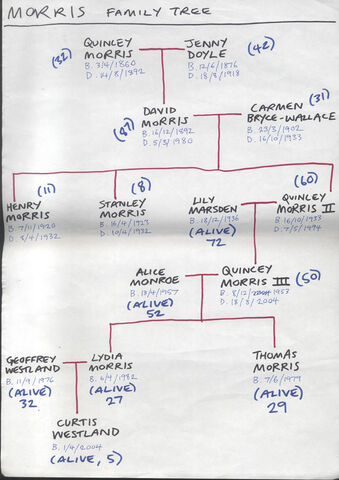 MORRIS FAMILY TREE
(32) QUINCEY MORRIS JENNY DOYLE (42)
B. 3/4/1860 B. 12/6/1876
D. 14/8/1892 D. 18/3/1918
(87) DAVID MORRIS CARMEN BRYCE-WALLACE (31)
B. 16/12/1892 B. 23/3/1902
D. 5/3/1980 D. 16/10/1933
(11) (8) (60)
HENRY MORRIS STANLEY MORRIS LILY MARSDEN QUINCEY MORRIS II
B. 7/11/1920 B. 16/4/1923 B. 18/12/1936 B. 16/10/1933
D. 3/4/1932 D. 10/2/1932 (ALIVE) D. 7/5/1994
72
ALICE MONROE QUINCEY MORRIS III (50)
B. 13/4/1957 B. 8/12/1953
(ALIVE) D. 18/3/2004
52
GEOFFREY WESTLAND LYDIA MORRIS THOMAS MORRIS
B. 11/9/1976 B. 6/4/1982 B. 7/6/1979
(ALIVE) (ALIVE) (ALIVE)
32 27 29
CURTIS WESTLAND
B. 1/4/2004
(ALIVE, 5)